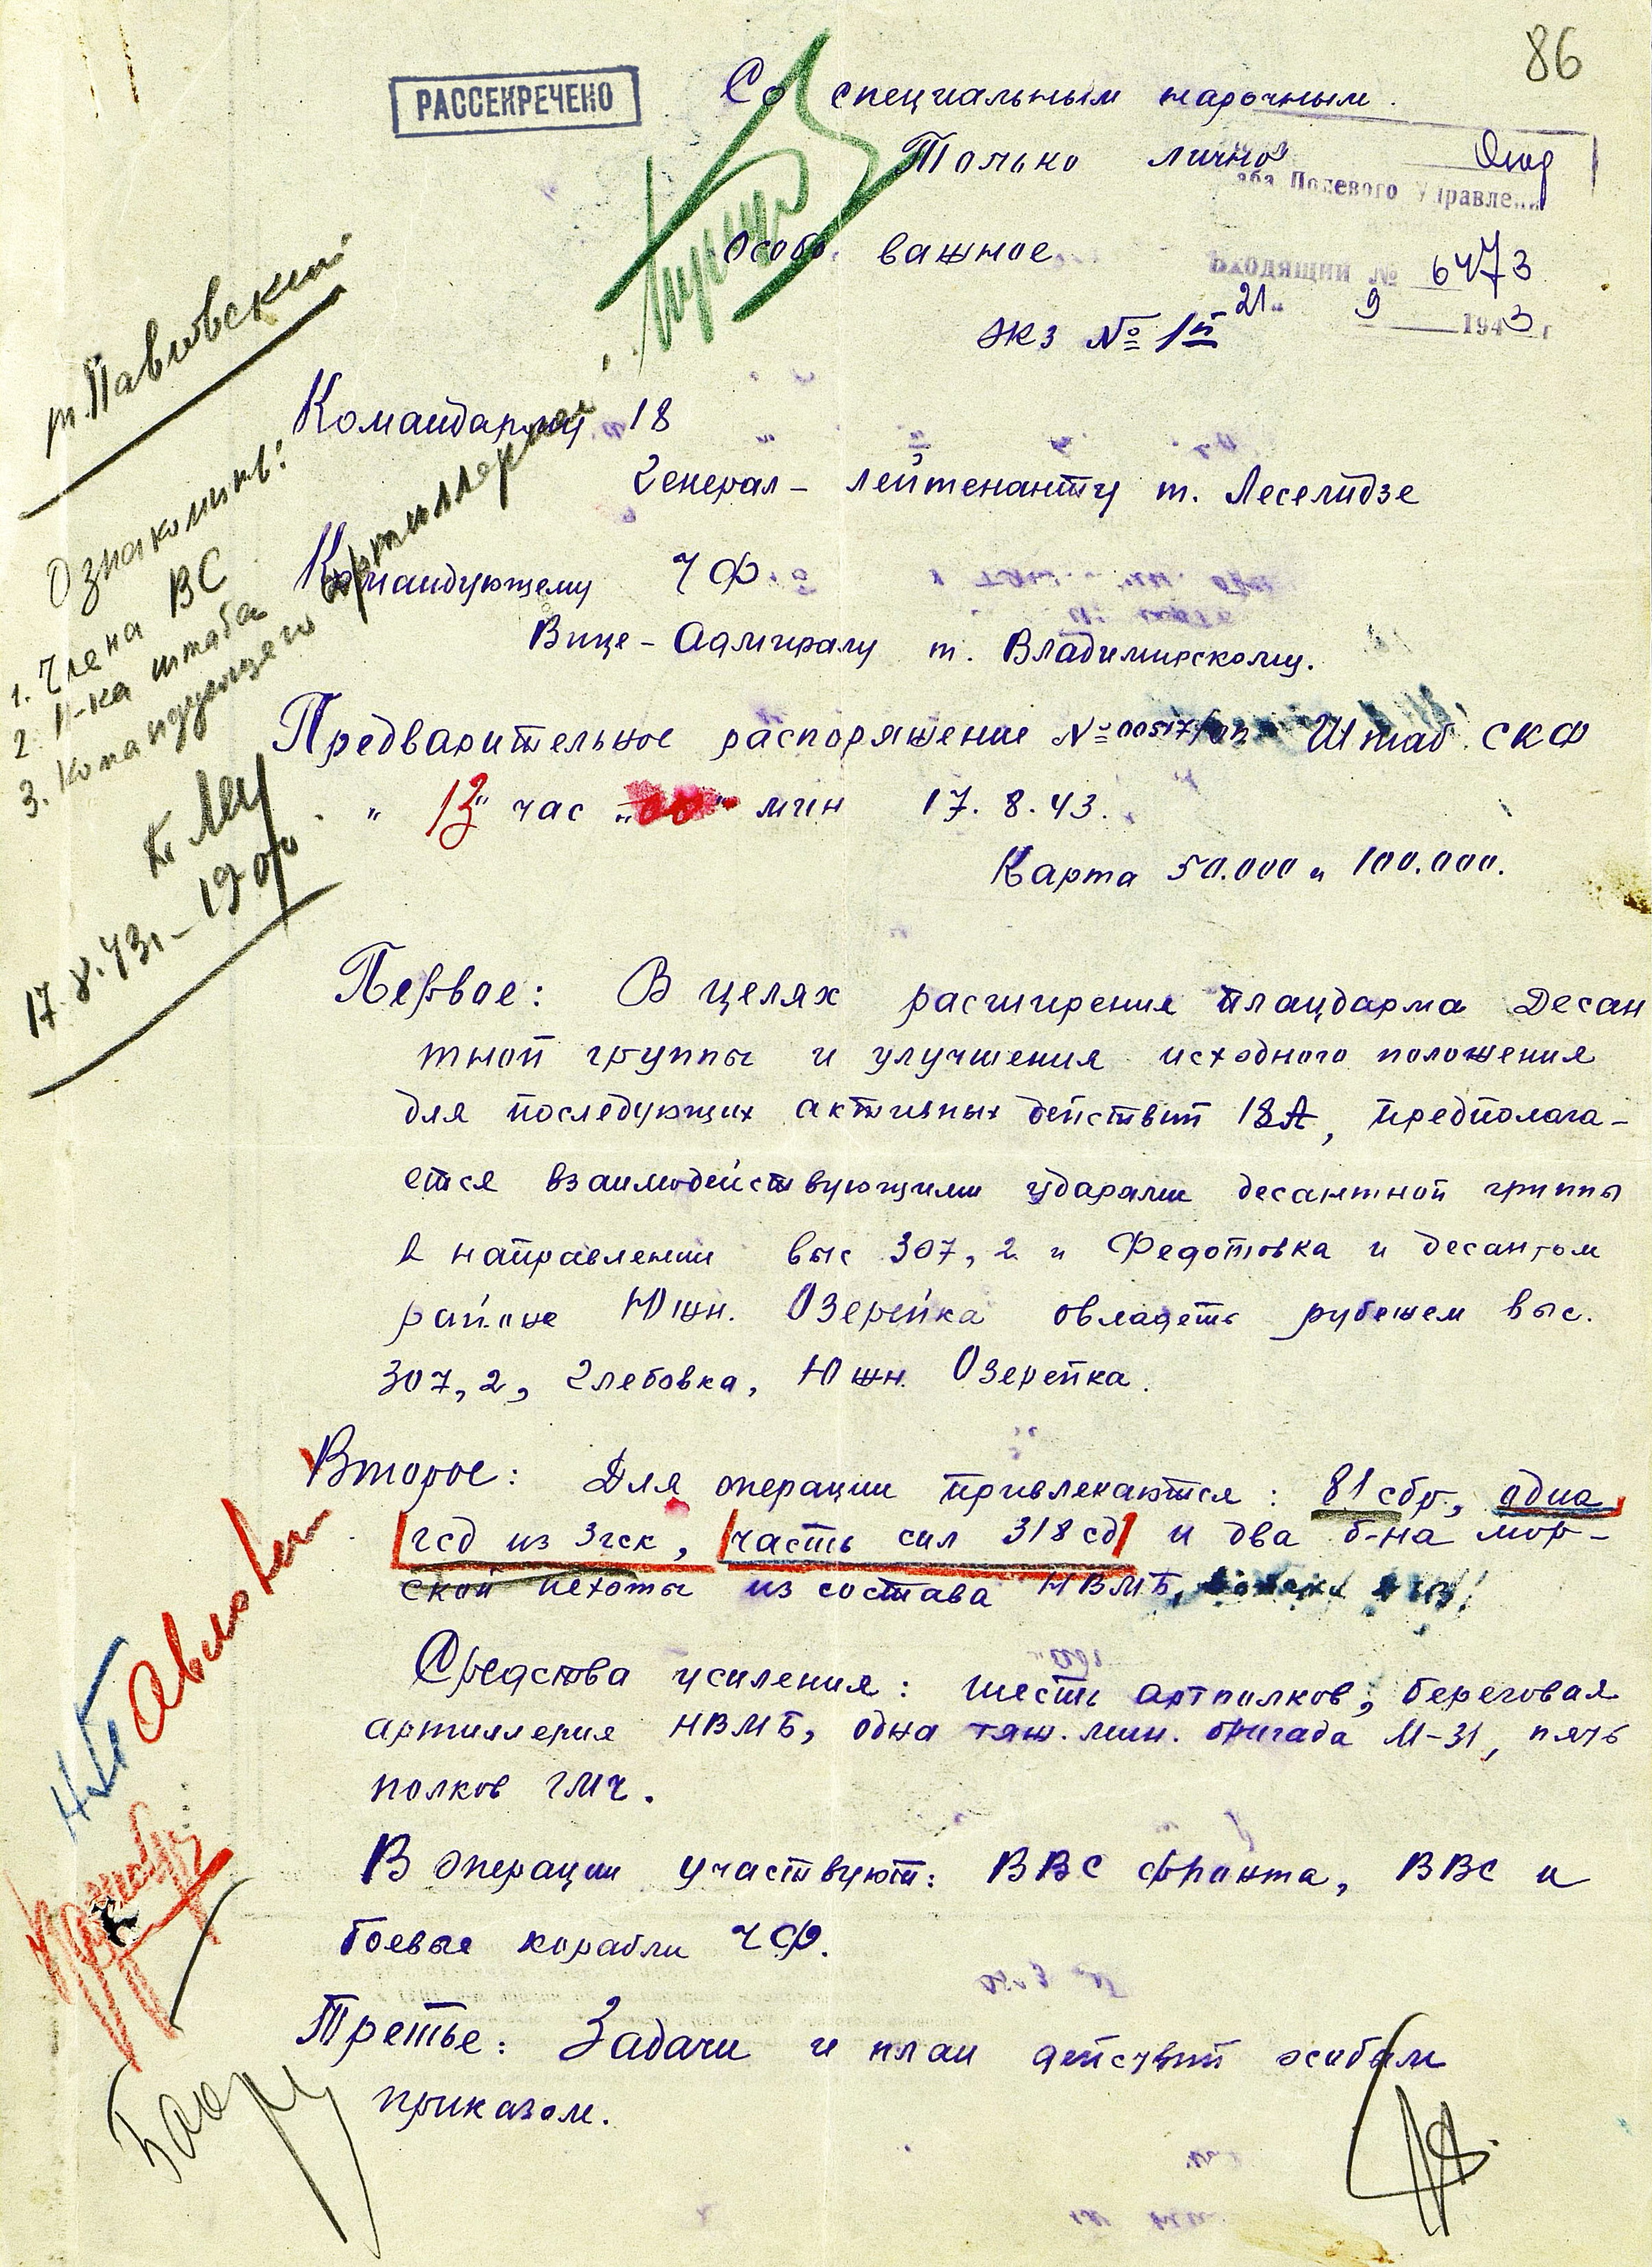 86
РАССЕКРЕЧЕНО
Со специальным нарочным.
Только лично
аба Полевого Управлен
Особо важное
Входящий № 6473
21 9 1943 г
экз № 1й
т. Павловский
Ознакомить:
1. Члена ВС
2. Н-ка штаба
3. Командующего артиллерией
17.8.43г – 19 00
Командарму 18
Генерал – лейтенанту т. Леселидзе
Командующему ЧФ.
Вице – Адмиралу т. Владимирскому.
Предварительное распоряжение № 00517/оп Штаб СКФ
„ 13" час „00" мин 17. 8. 43.
Карта 50.000 и 100.000.
Первое: В целях расширения плацдарма Десан
тной группы и улучшения исходного положения
для последующих активных действий 18А, предполага–
ется взаимодействующими ударами десантной группы
в направлении выс 307,2 и Федотовка и десантом
районе Южн. Озерейка овладеть рубежем выс.
307,2, Глебовка, Южн. Озерейка.
Второе: Для операции привлекаются: 81 сбр, одна
гсд из 3гск, часть сил 318 сд и два б-на мор–
ской пехоты из состава НВМБ,
Средства усиления: шесть артполков, береговая
артиллерия НВМБ, одна тяж. мин. бригада М-31, пять
полков ГМЧ.
В операции участвуют: ВВС фронта, ВВС и
боевые корабли ЧФ.
Третье: Задачи и план действий особым
приказом.